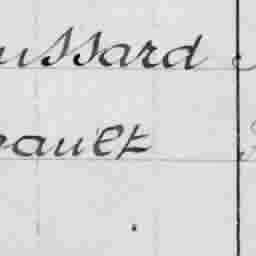 ussard
eault